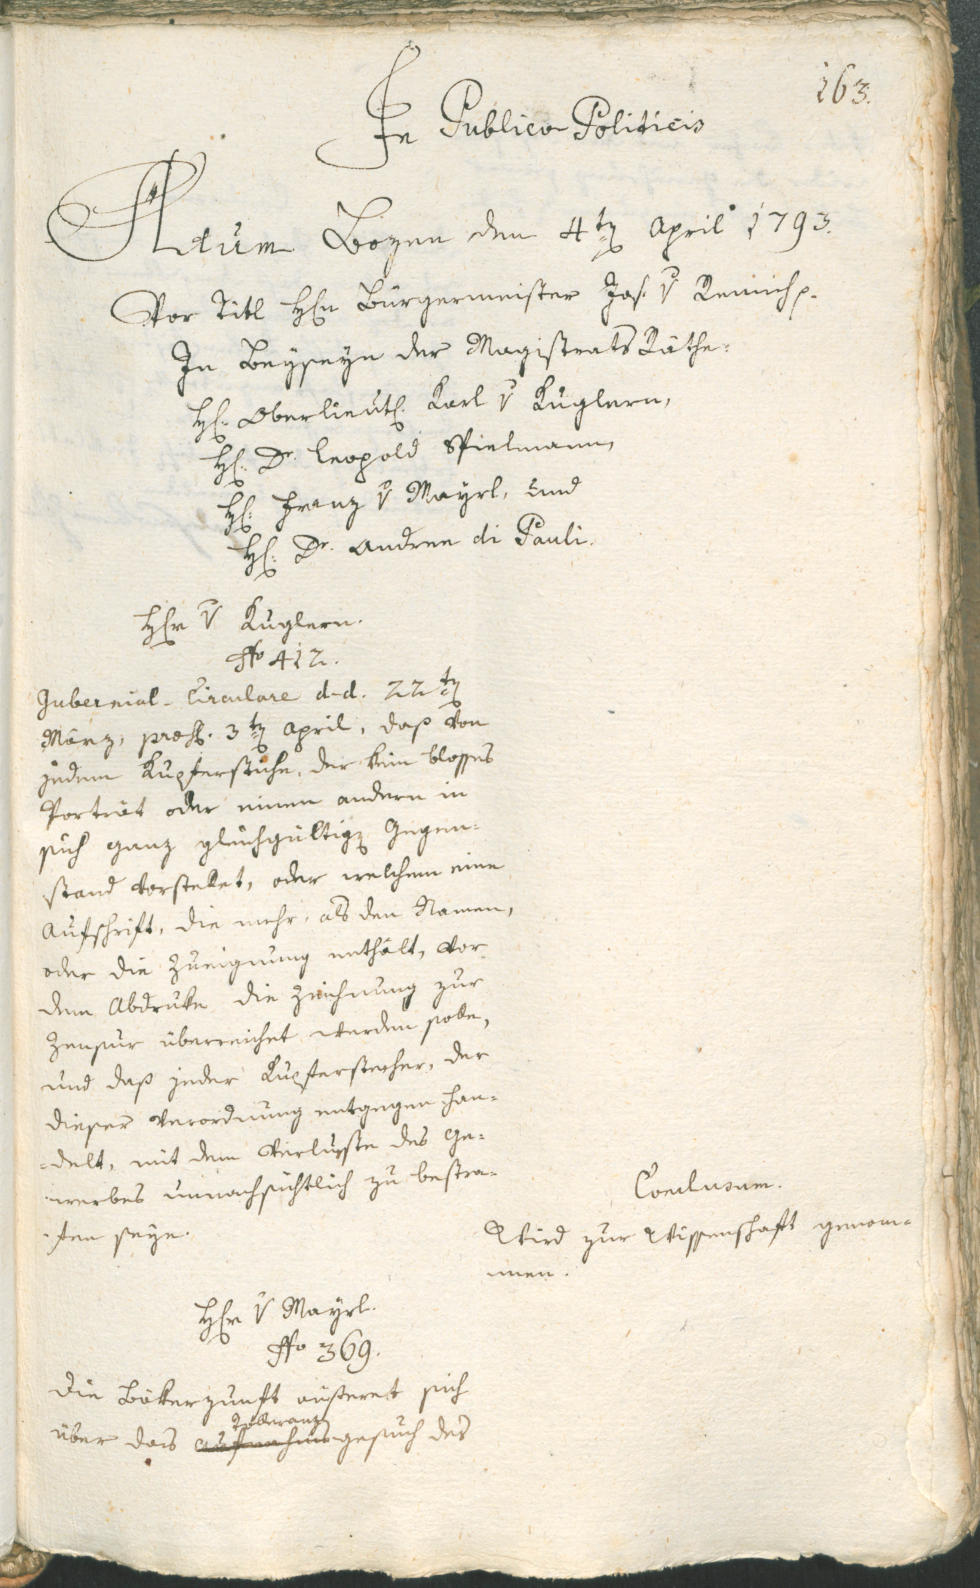 163.
In Publico Politicis
Actum Bozen den 4ten April 1793.
Vor Titl Hrn Bürgermeister Jos. v Remich p.
In Beyseyn der Magistrats Räthe:
H: Oberlieut: Karl v Kuglern,
H: Dr. Leopold Spielmann,
H: Franz v Mayrl, und
H: Dr. Andree di Pauli.
Hr v Kuglern.
No 412.
Gubernial-Circulare d-d. 22ten
März, præs: 3ten April, daß von
jedem Kupferstiche, der kein blosses
Porträt oder einen andern in
sich ganz gleichgültigen Gegen-
stand vorstellet, oder welchem eine
Aufschrift, die mehr, als den Namen,
oder die Zueignung enthält, vor
dem Abdruke die Zeichnung zur
Zensur überreichet werden solle,
und daß jeder Kupferstecher, der
dieser Verordnung entgegen han-
delt, mit dem Verluste des Ge-
werbes unnachsichtlich zu bestra-
fen seye.
Conclusum.
Wird zur Wissenschaft genom-
men.
Hr v Mayrl.
No 369.
Die Bäkerzunft äusseret sich
über das Aufnahms Tolleranz gesuch des